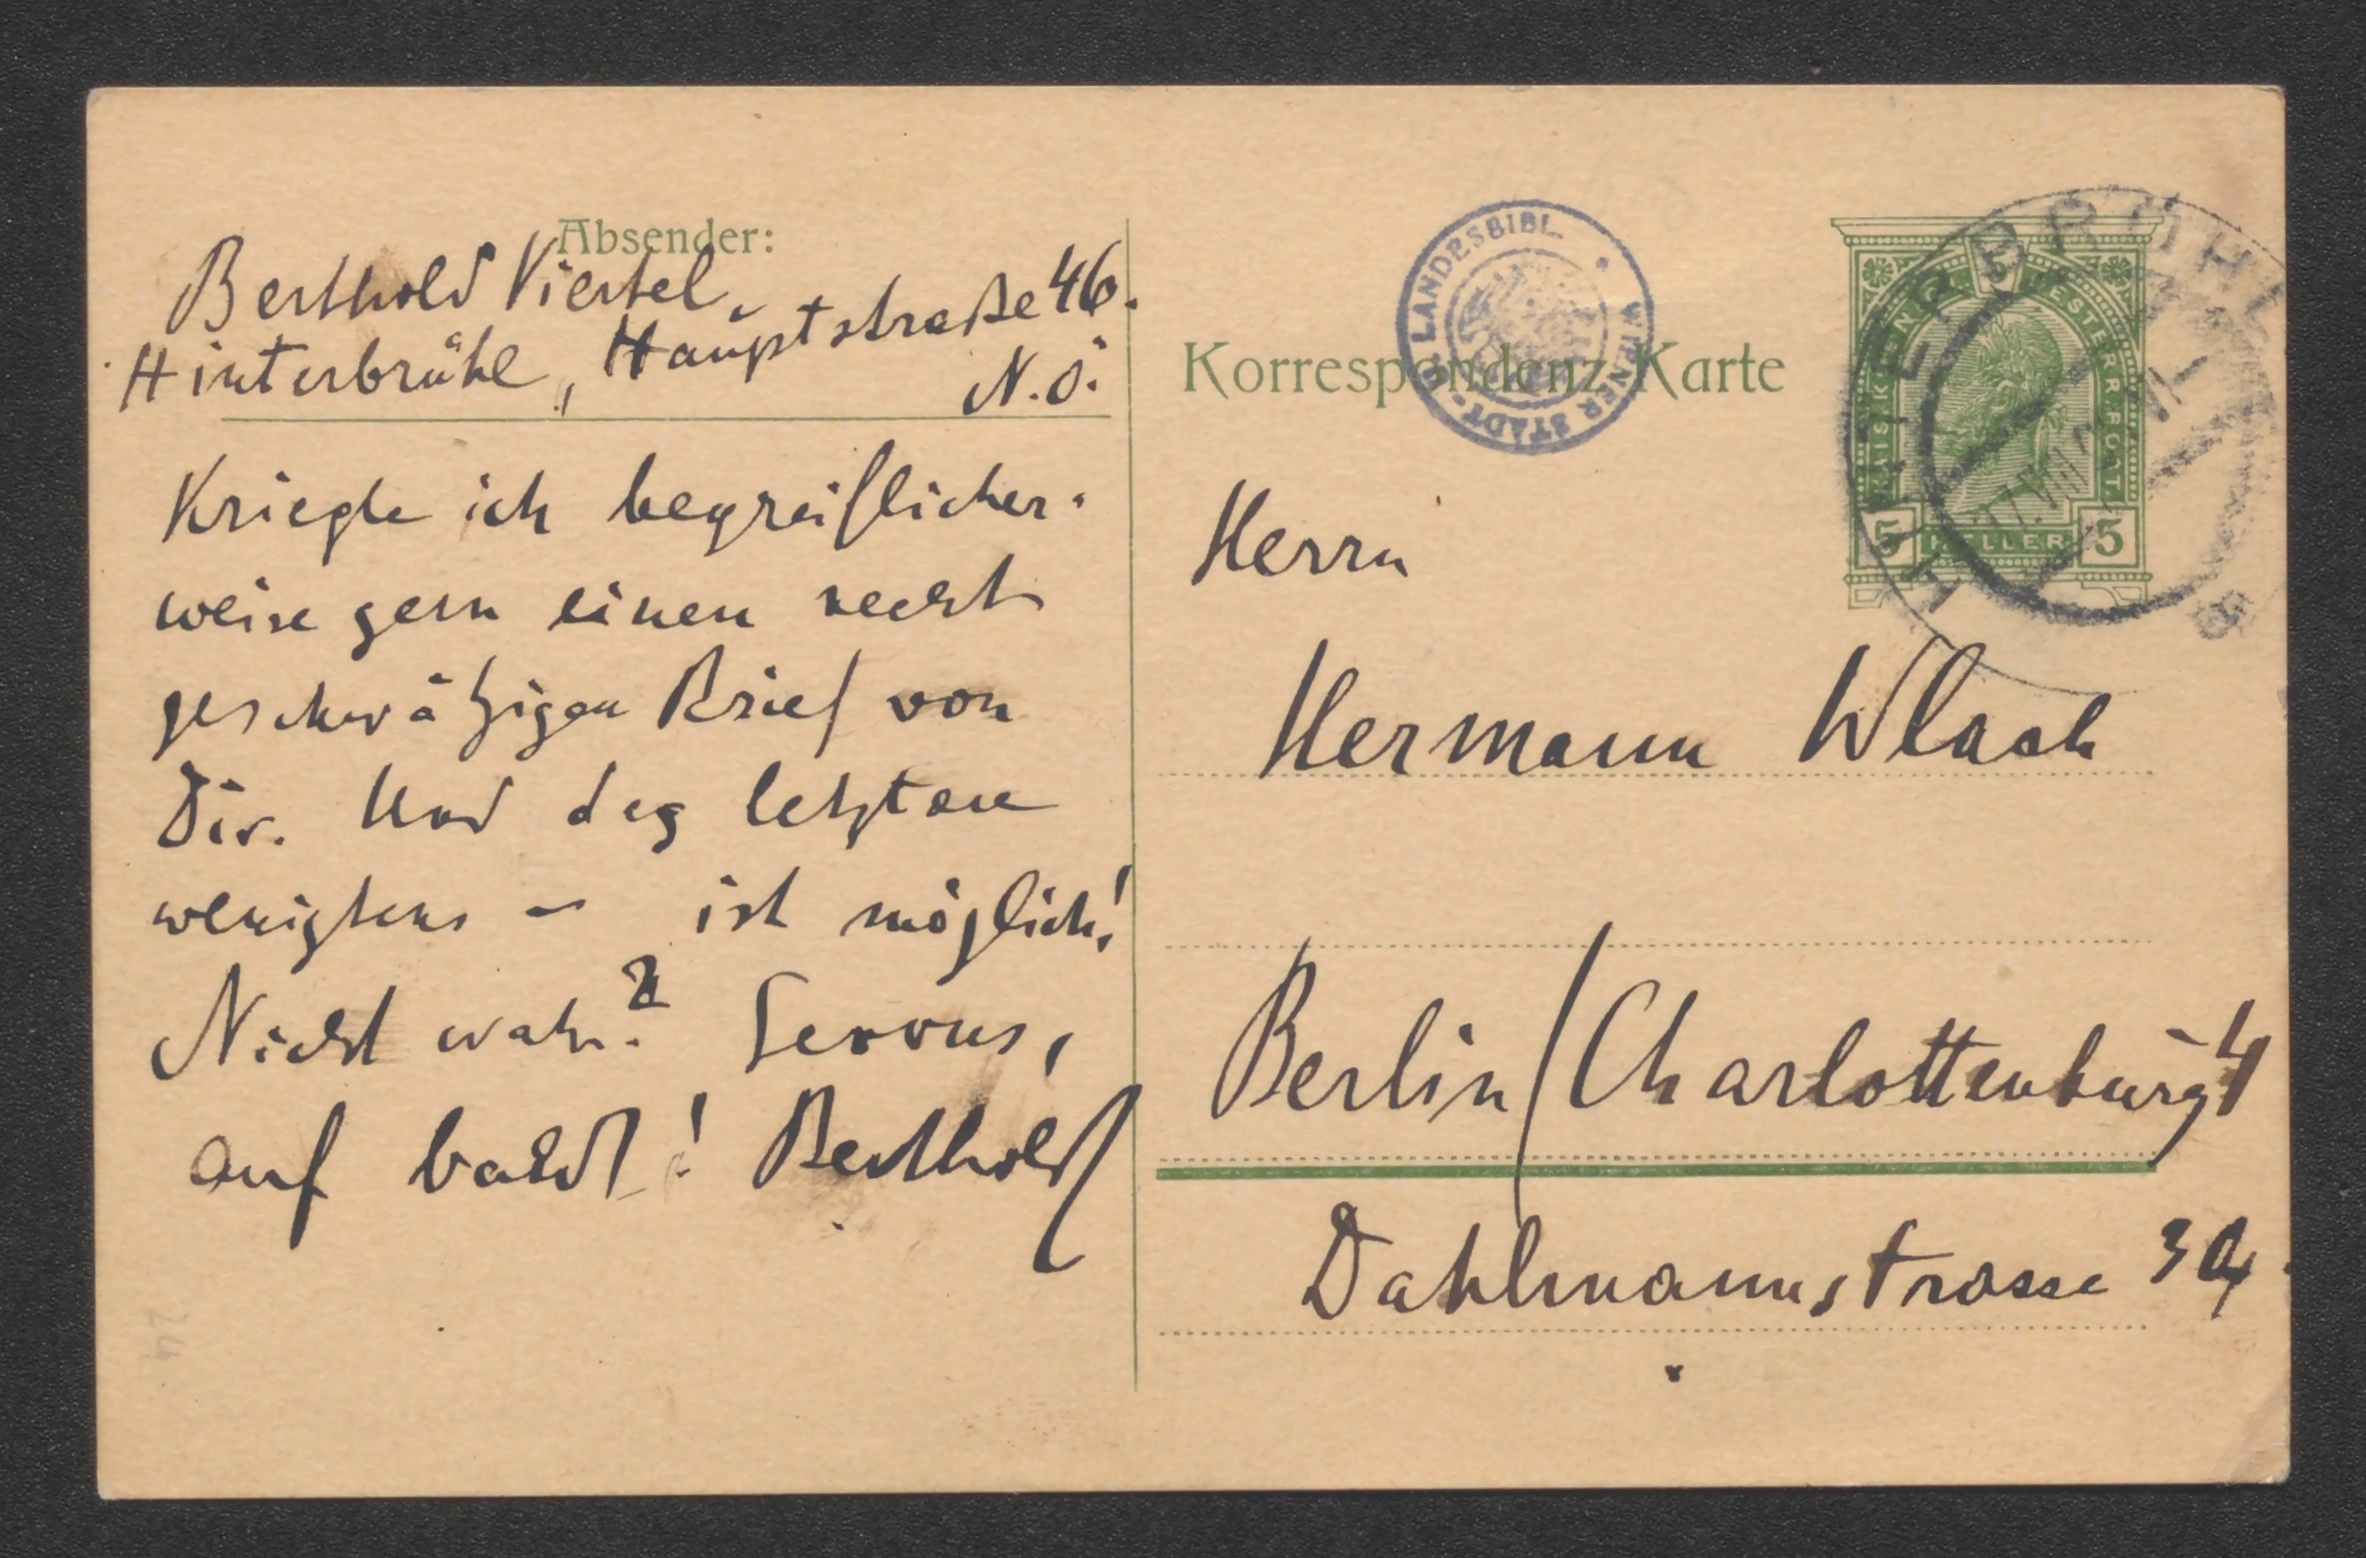 Absender:
Berthold Viertel,
Hinterbrühl, Hauptstraße 46.
N.Ö.
Kriegte ich begreiflicher-
weise gern einen recht
geschwätzigen Brief von
Dir. Und das letztere
wenigstens – ist möglich!
Nicht wahr? Servus,
auf bald! Berthold
WIENER STADT- U. LANDESBIBL.
Korrespondenz-Karte
HINTERBRÜHL
KAIS. KOENIGL. OESTERR. POST
5 HELLER 5
Herrn
Hermann Wlach
Berlin/Charlottenburg 4
Dahlmannstrasse